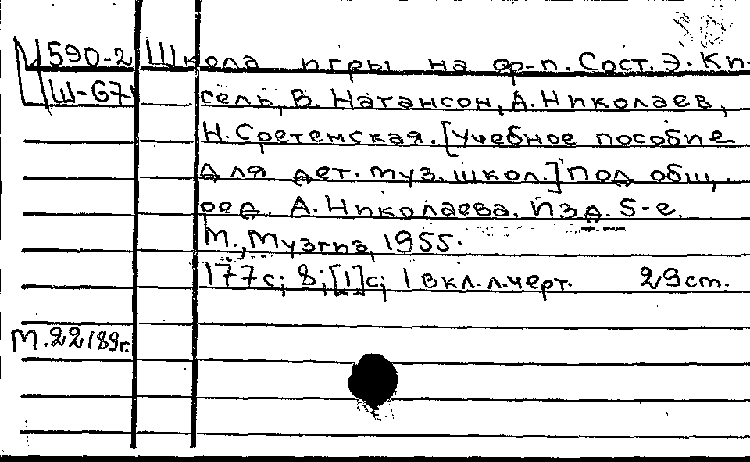 590-2 Школа игры на ф-п. Сост. Э. Ки-
Ш-67 сель, В. Натансон, А. Николаев,
Н. Сретенская. [Учебное пособие
для дет. муз. школ.] Под общ.
ред. А. Николаева. Изд. 5-е.
М., Музгиз, 1955.
177 с; 8; [1] с; 1 вкл. л. черт. 29 ст.
М. 22189г.